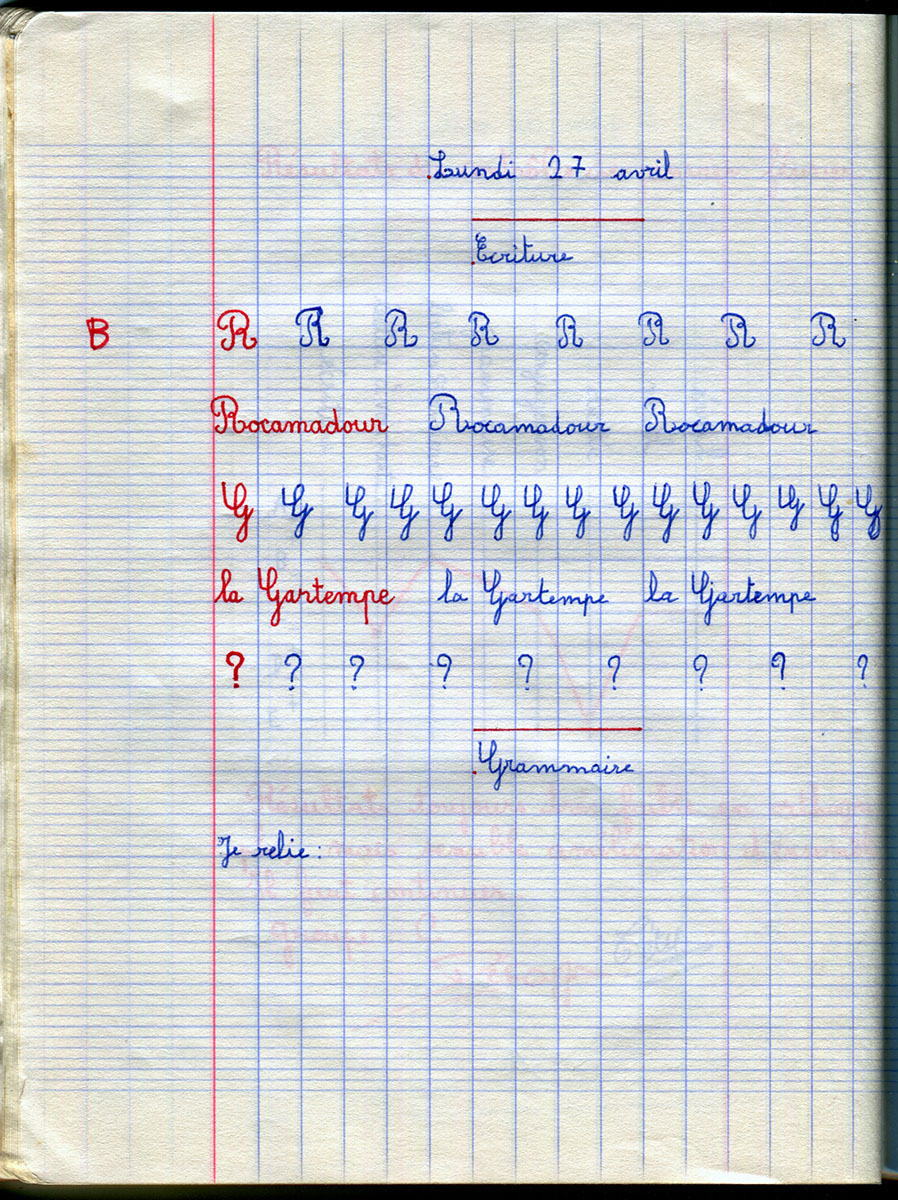 Lundi 27 avril
Ecriture
B R R R R R R R R
Rocamadour Rocamadour Rocamadour
G G G G G G G G G G G G G G G
la Gartempe la Gartempe la Gartempe
? ? ? ? ? ? ? ? ?
Grammaire
Je relie :